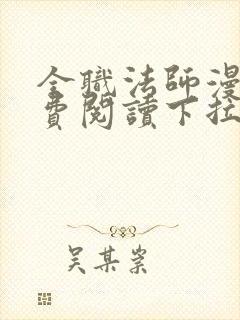 全職法師漫
費閱讀下拉
吴某岽